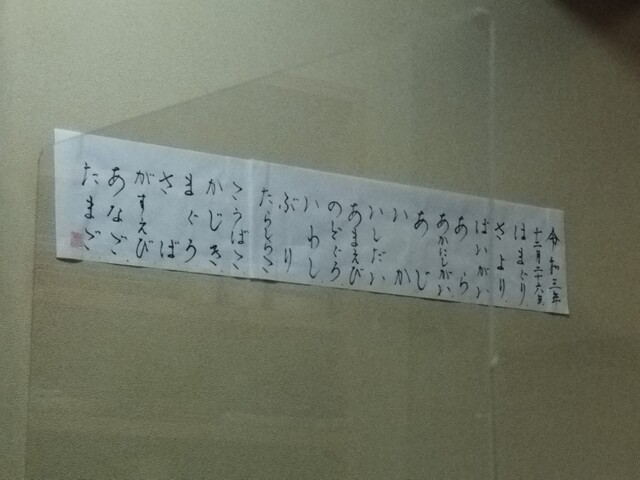 令和三年
十二月二十六日
はまぐり
さより
ばいがい
あら
あかにしがい
あじ
いか
いしだい
あまえび
のどぐろ
いわし
ぶり
たらしらこ
こうばこ
かじき
まぐろ
さば
がすえび
あなご
たまご